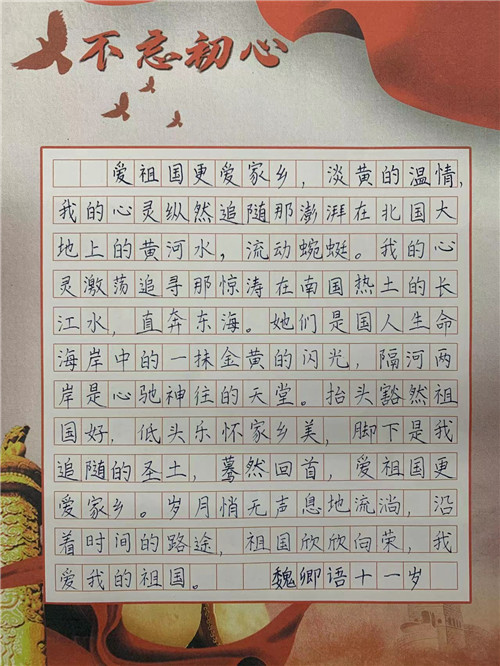 不忘初心
爱祖国更爱家乡，淡黄的温情，
我的心灵纵然追随那澎湃在北国大
地上的黄河水，流动蜿蜒。我的心
灵激荡追寻那惊涛在南国热土的长
江水，直奔东海。她们是国人生命
海岸中的一抹金黄的闪光，隔河两
岸是心驰神往的天堂。抬头豁然祖
国好，低头乐怀家乡美，脚下是我
追随的圣土，蓦然回首，爱祖国更
爱家乡。岁月悄无声息地流淌，沿
着时间的路途，祖国欣欣向荣，我
爱我的祖国。 魏卿语十一岁